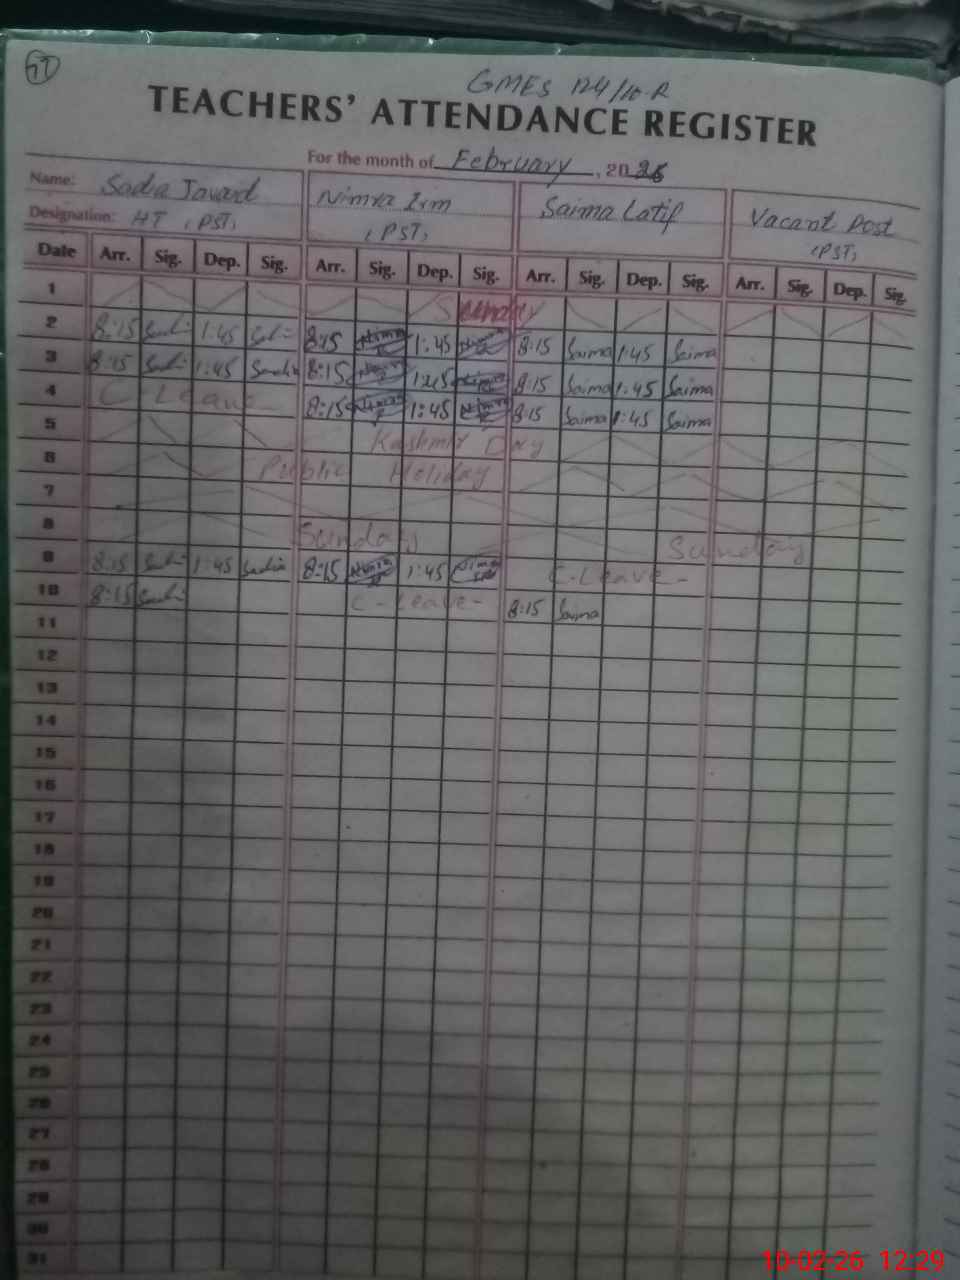 GMES 124/10-R
TEACHERS' ATTENDANCE REGISTER
For the month of February, 2026
Name: Sadia Javard Nimra Irm Saima Latif Vacant Post
Designation: HT (PST) (PST) (PST)
Date Arr. Sig. Dep. Sig. Arr. Sig. Dep. Sig. Arr. Sig. Dep. Sig. Arr. Sig. Dep. Sig.
1 Sunday
2 8:15 1:45 8:15 Nimra 1:45 Nimra 8:15 Saima 1:45 Saima
3 8:15 1:45 8:15 Nimra 1:45 Nimra 8:15 Saima 1:45 Saima
4 C-Leave 8:15 Nimra 1:45 Nimra 8:15 Saima 1:45 Saima
5 Kashmir Day
6 Public Holiday
7
8 Sunday Sunday
9 8:15 1:45 Sadia 8:15 Nimra 1:45 Nimra C-Leave-
10 8:15 C-Leave- 8:15 Saima
11
12
13
14
15
16
17
18
19
20
21
22
23
24
25
26
27
28
29
30
31
10-02-26 12:29